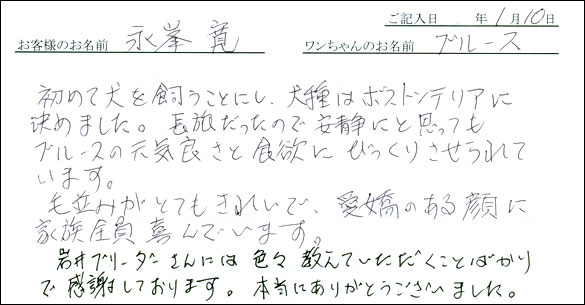 ご記入日　　年 1月 10日
お客様のお名前　永峯 寛　ワンちゃんのお名前　ブルース
初めて犬を飼うことにし、犬種はボストンテリアに
決めました。長旅だったので安静にと思っても
ブルースの元気良さと食欲にびっくりさせられて
います。
毛並みがとてもきれいで、愛嬌のある顔に
家族全員喜んでいます。
岩井ブリーダーさんには色々教えていただくことばかり
で感謝しております。本当にありがとうございました。